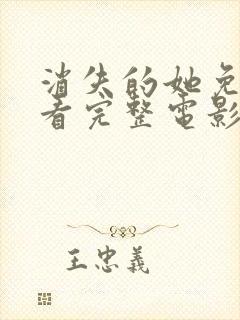 消失的她免
看完整电影
王忠义